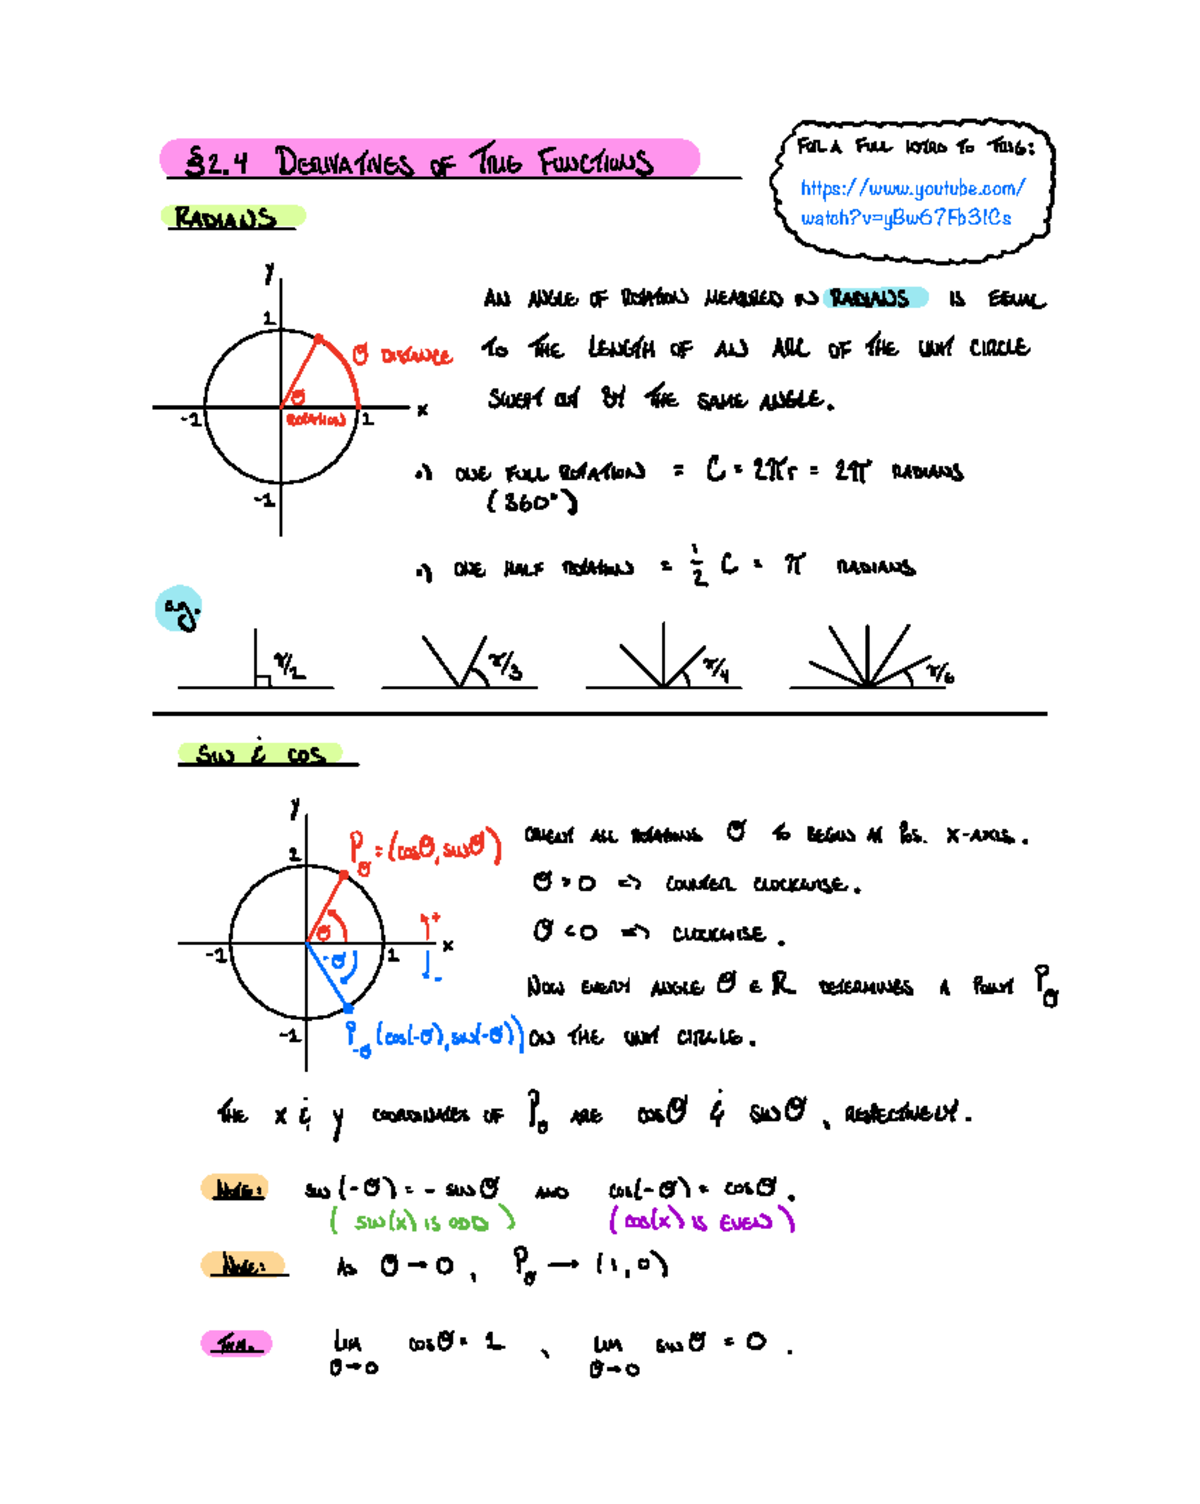 §2.4 DERIVATIVES OF TRIG FUNCTIONS
FOR A FULL INTRO TO TRIG:
https://www.youtube.com/
watch?v=yBw67Fb3ICs
RADIANS
y
1
-1
1
x
-1
θ DISTANCE
θ
ROTATION
AN ANGLE OF ROTATION MEASURED IN RADIANS IS EQUAL
TO THE LENGTH OF AN ARC OF THE UNIT CIRCLE
SWEPT OUT BY THE SAME ANGLE.
•) ONE FULL ROTATION = C = 2πr = 2π RADIANS
(360°)
•) ONE HALF ROTATION = 1/2 C = π RADIANS
e.g.
π/2
π/3
π/4
π/6
SIN & COS
y
1
-1
1
x
-1
P_θ = (cosθ, sinθ)
θ
+
-θ
-
P_-θ (cos(-θ), sin(-θ))
ORIENT ALL ROTATIONS θ TO BEGIN AT POS. X-AXIS.
θ > 0 => COUNTER CLOCKWISE.
θ < 0 => CLOCKWISE.
NOW EVERY ANGLE θ ∈ ℝ DETERMINES A POINT P_θ
ON THE UNIT CIRCLE.
THE x & y COORDINATES OF P_θ ARE cosθ & sinθ, RESPECTIVELY.
NOTE: sin(-θ) = - sinθ AND cos(-θ) = cosθ.
(SIN(x) IS ODD) (cos(x) IS EVEN)
NOTE: AS θ → 0, P_θ → (1,0)
THM. LIM θ→0 cosθ = 1, LIM θ→0 sinθ = 0.